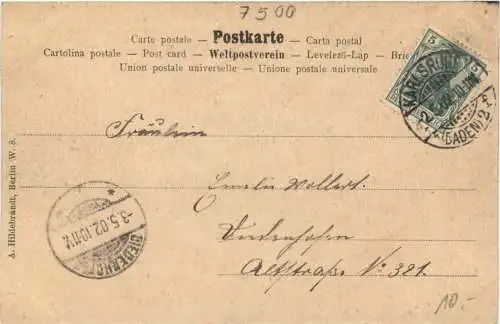 7500
Carte postale – Postkarte – Carta postal
Cartolina postale – Post card – Weltpostverein – Levelező-Lap – Brie
Union postale universelle – Unione postale universale
5
KARLSRUHE
(BADEN) 2
Fräulein
Emilie Wollert.
Diedenhofen
Altstraße No. 321.
3.5.02.
DIEDENH
A. Hildebrandt, Berlin W. 8.
10.-